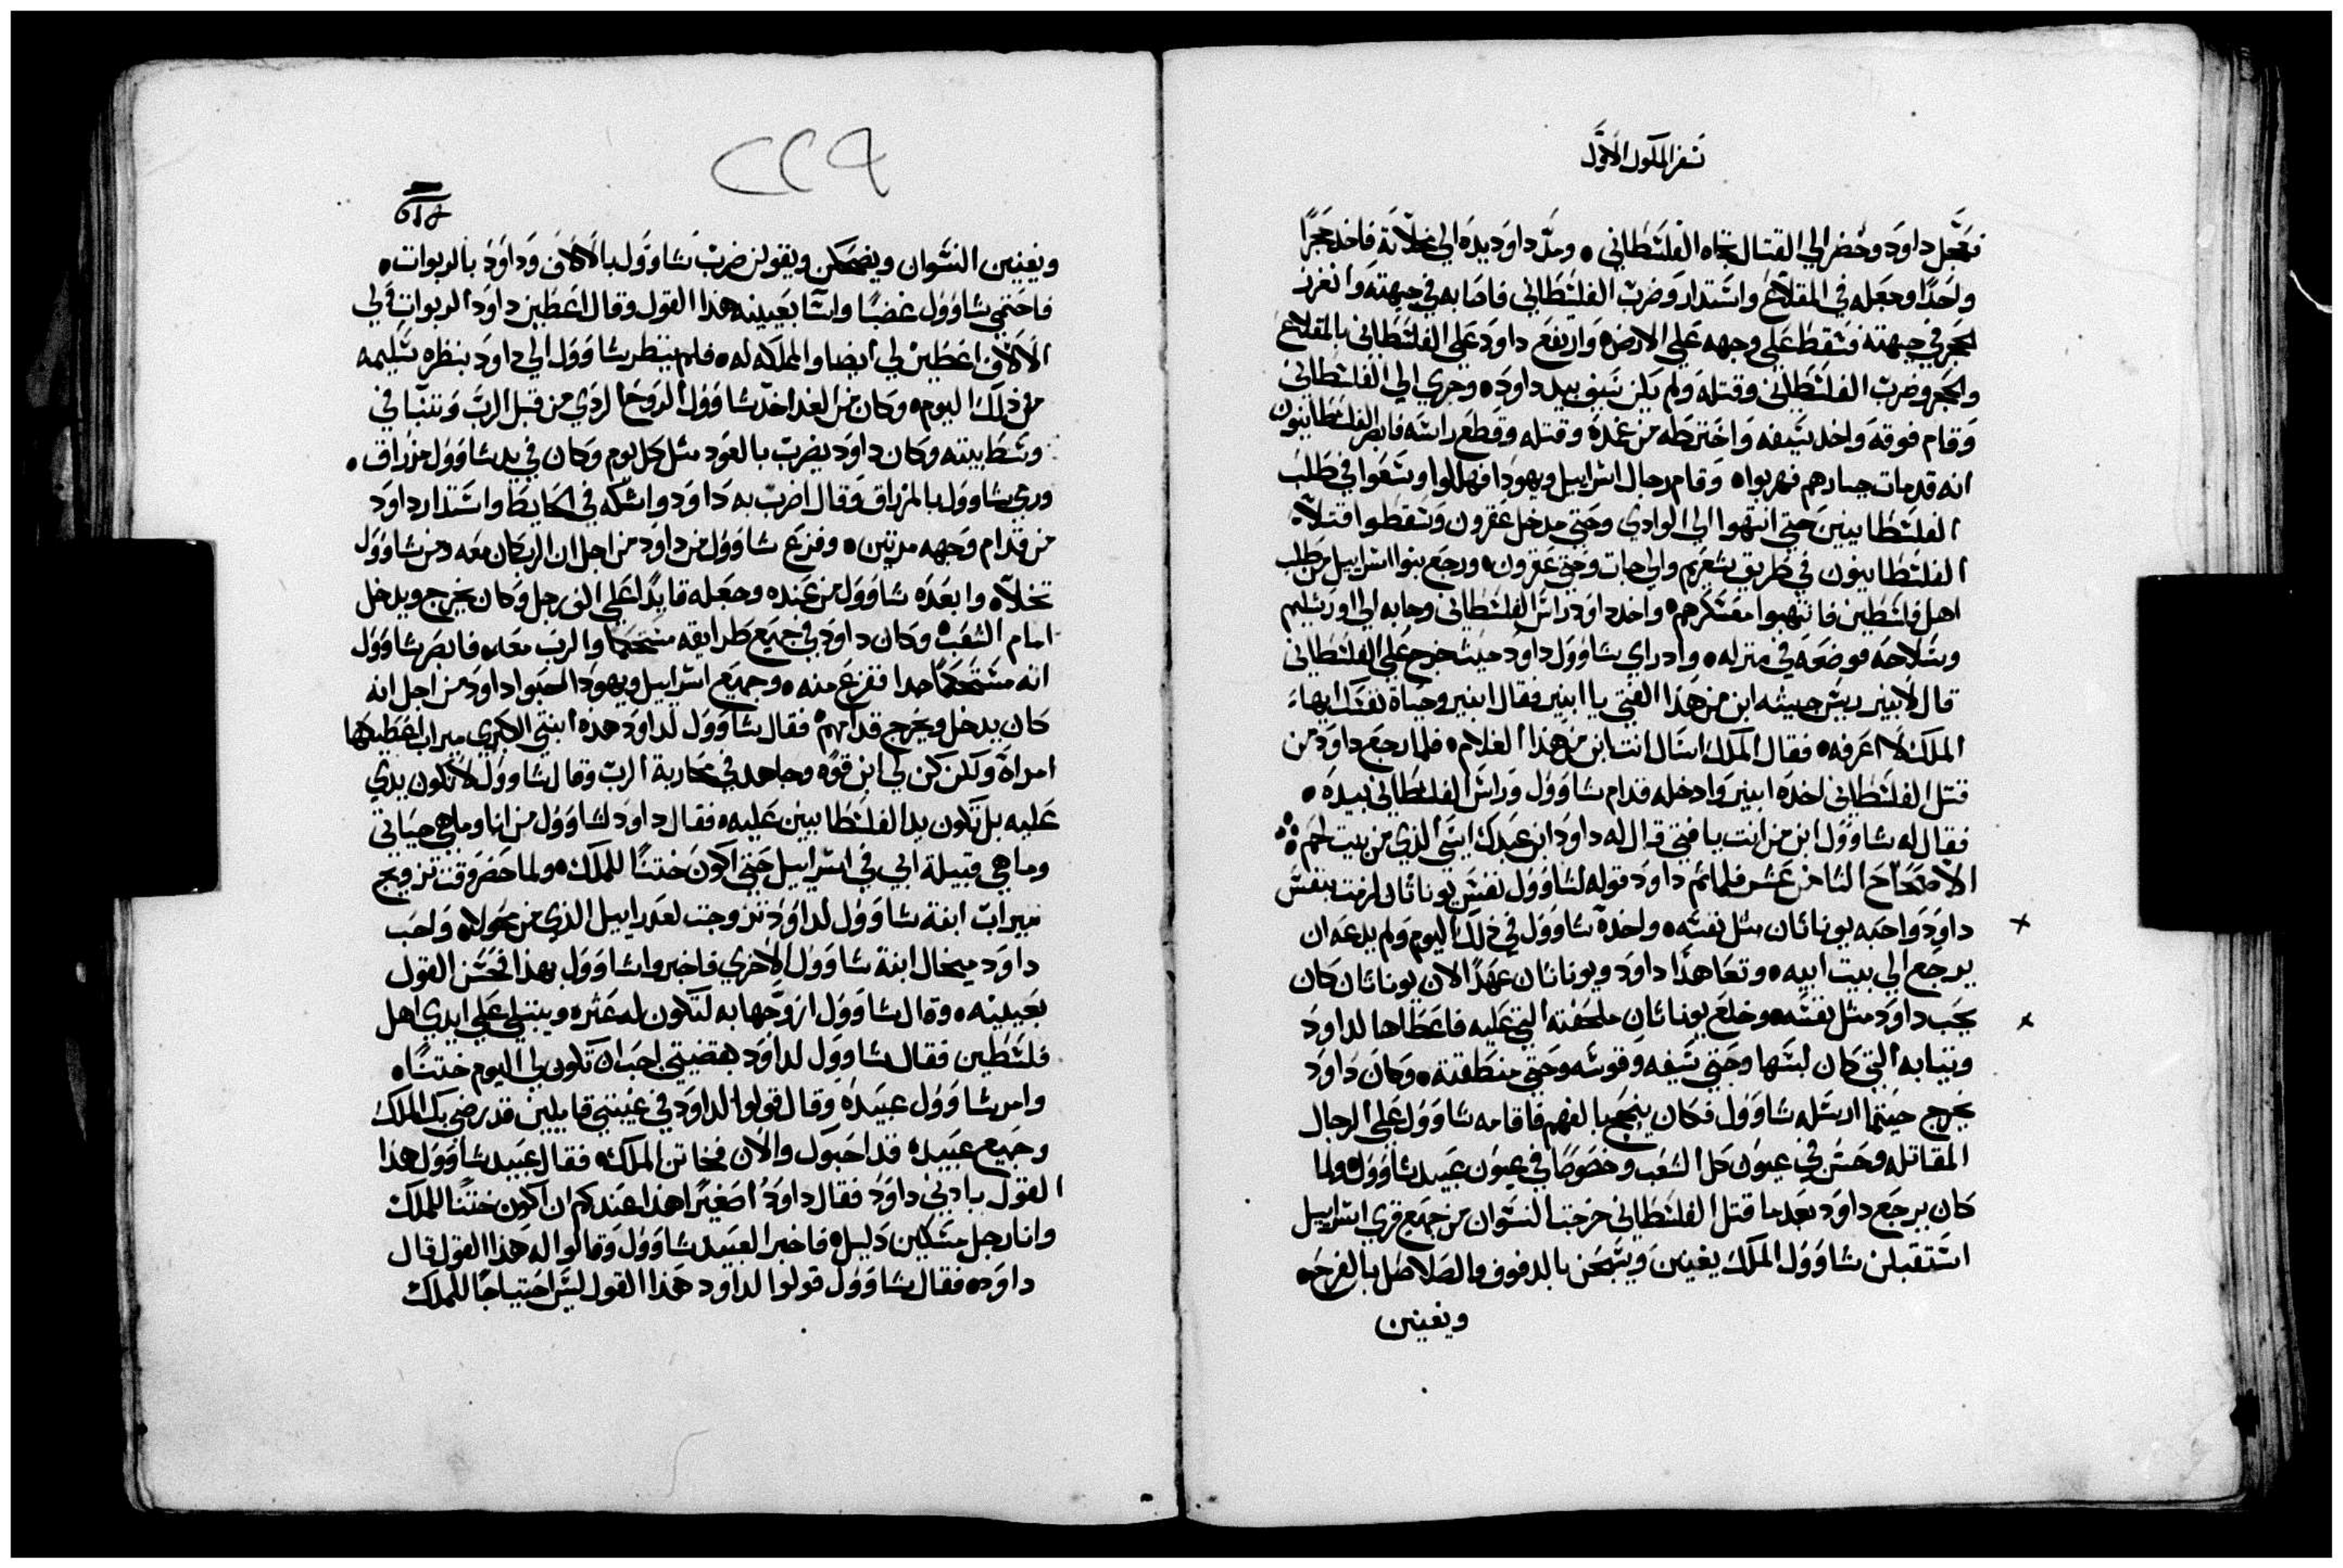 سفر الملوك الاول
فتعجل داود وحضر الي القتال تجاه الفلسطاني ۰ ومد داود يده الي مخلاته فاخد حجرًا
واحدًا وجعله في المقلاع واستدار وضرب الفلسطاني فاصابه في جبهته وانغرز
الحجر في جبهته فسقط علي وجهه علي الارض۰ وارتفع داود علي الفلسطاني بالمقلاع
والحجر وضرب الفلسطاني وقتله ولم يكن سيف بيد داود۰ وجري الي الفلسطاني
وقام فوقه واخد سيفه واخترطه من غمده وقتله وقطع راسه فابصر الفلسطانيون
انه قد مات جبارهم فهربوا۰ وقام رجال اسراييل ويهودا فهللوا وسعوا في طلب
الفلسطانيين حتي انتهوا الي الوادي وحتي مدخل عقرون وسقطوا قتلاه
الفلسطانيون في طريق شعريم والي جات وحتي عقرون۰ ورجع بنوا اسراييل من طلب
اهل فلسطين فانتهبوا معسكرهم۰ واخد داود راس الفلسطاني وجابه الي اورشليم
وسلاحه فوضعه في منزله۰ واد راي شاوول داود حيث خرج علي الفلسطاني
قال لابنير ريس جيشه ابن من هذا الفتي يا ابنير فقال ابنير وحياة نفسك ايها
الملك لا اعرفه۰ فقال الملك اسال انت ابن من هذا الغلام۰ فلما رجع داود من
قتل الفلسطاني اخده ابنير وادخله قدام شاوول وراس الفلسطاني بيده ۰
فقال له شاوول ابن من انت يا فتي قال له داود ابن عبدك ايسي الذي من بيت لحم
الاصحاح التامن عشر فلما تم داود قوله لشاوول نفس يوناثان لزمت بنفس
داود واحبه يوناثان مثل نفسه۰ واخده شاوول في ذلك اليوم ولم يدعه ان
يرجع الي بيت ابيه۰ وتعاهدا داود ويوناثان عهدًا لان يوناثان كان
يحب داود مثل نفسه۰ وخلع يوناثان ملحفته التي عليه فاعطاها لداود
وثيابه التي كان لبسها وحتي سيفه وقوسه وحتي منطقته۰ وكان داود
يخرج حيتما ارسله شاوول فكان ينجح بالفهم فاقامه شاوول علي الرجال
المقاتله وحسن في عيون كل الشعب وخصوصًا في عيون عبيد شاوول۰ ولما
كان يرجع داود بعد ما قتل الفلسطاني خرجت النسوان من جميع قري اسراييل
استقبلن شاوول الملك يغنين ويسبحن بالدفوف والصلاصل بالفرح۰
ويغنين
٢٢٩
ويغنين النسوان ويضحكن ويقولن ضرب شاوول بالالاف وداود بالربوات۰
فاحتمي شاوول غضبًا واسا بعينه هذا القول وقال اعطين داود الربوات ولي
الالاف اعطين لي ايضا والمملكه له۰ فلم ينظر شاوول الي داود بنظره سليمه
من ذلك اليوم۰ وكان من الغد اخد شاوول الروح الردي من قبل الرب وتنبا في
وسط بيته وكان داود يضرب بالعود مثل كل يوم وكان في يد شاوول مزراق۰
ورمي شاوول بالمزراق وقال اضرب به داود واشكه في الحايط واستدار داود
من قدام وجهه مرتين۰ وفزع شاوول من داود من اجل ان الرب كان معه ومن شاوول
تخلاه وابعده شاوول من عنده وجعله قايدًا علي الف رجل وكان يخرج ويدخل
امام الشعب۰ وكان داود في جميع طرايقه مستحكمًا والرب معه۰ فابصر شاوول
انه مستحكمًا جدا ففزع منه۰ وجميع اسراييل ويهودا احبوا داود من اجل انه
كان يدخل ويخرج قدامهم۰ فقال شاوول لداود هذه ابنتي الكبري ميراب اعطيكها
امراة ولكن كن لي ابن قوه وجاهد في محاربة الرب وقال شاوول لا تكون يدي
عليه بل تكون يد الفلسطانيين عليه۰ فقال داود لشاوول من انا وما هي حياتي
وما هي قبيلة ابي في اسراييل حتي اكون ختنًا للملك۰ ولما حضر وقت تزويج
ميراب ابنة شاوول لداود تزوجت لعدراييل الذي من محولاه واحب
داود ميخال ابنة شاوول الاخري فاخبروا شاوول بهذا فحسن القول
بعينيه۰ وقال شاوول ازوجها به لتكون له عثره ويبتلي علي ايدي اهل
فلسطين فقال شاوول لداود بقضيتي احب ان تكون لي اليوم ختنًا۰
وامر شاوول عبيده وقال قولوا لداود في غيبتي قايلين قد رضي بك الملك
وجميع عبيده قد احبوك والان فخاتن الملك۰ فقال عبيد شاوول هذا
القول بادني داود فقال داود اصغيرًا هذا عندكم ان اكون ختنًا للملك
وانا رجل مسكين دليل۰ فاخبر العبيد شاوول وقالوا له هذا القول قال
داود۰ فقال شاوول قولوا لداود هذا القول ليس احتياجًا للملك